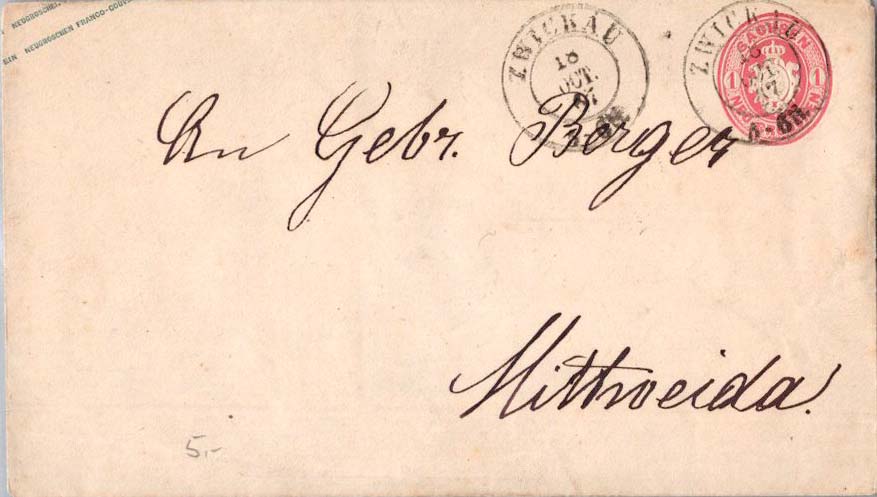 NEUGROSCHEN
EIN NEUGROSCHEN FRANCO-COUV
ZWICKAU
18
OCT.
67
ZWICKAU
18
67
5-6N.
SACHSEN
1 1
An Gebr. Berger
Mittweida.
5,-